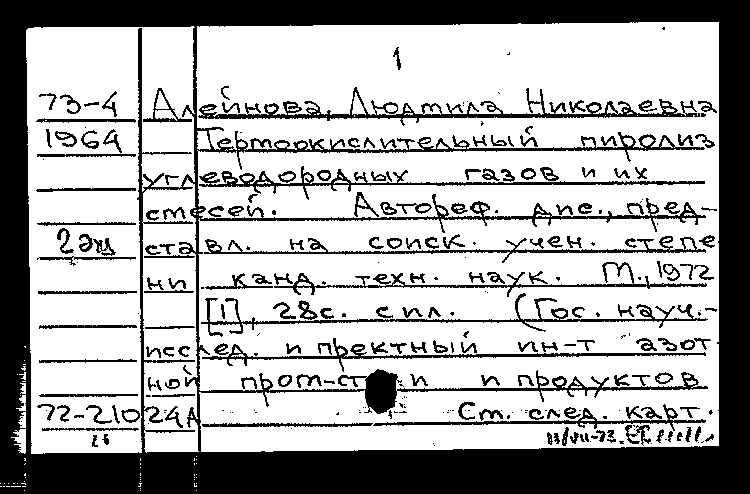 1
73-4 Алейнова, Людмила Николаевна
1964 Термоокислительный пиролиз
углеводородных газов и их
смесей. Автореф. дис., пред-
2 экз ставл. на соиск. учен. степе
ни канд. техн. наук. М., 1972
[1], 28с. с ил. (Гос. науч.-
исслед. и пректный ин-т азот
ной пром-сти и продуктов
72-21024А Ст. след. карт.
26